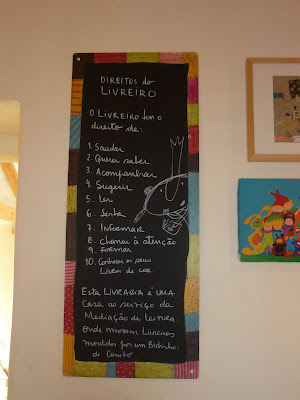 DIREITOS do
LIVREIRO
O LIVREIRO tem o
direito de:
1. Saudar
2. Querer saber
3. Acompanhar
4. Sugerir
5. Ler
6. Sentir
7. Informar
8. Chamar à atenção
9. Formar
10. Conhecer os seus
Livros de cor.
Esta LIVRARIA é UMA
Casa ao serviço da
Mediação de Leitura
Onde moram Livreiros
mordidos por um Bichinho
de Conto